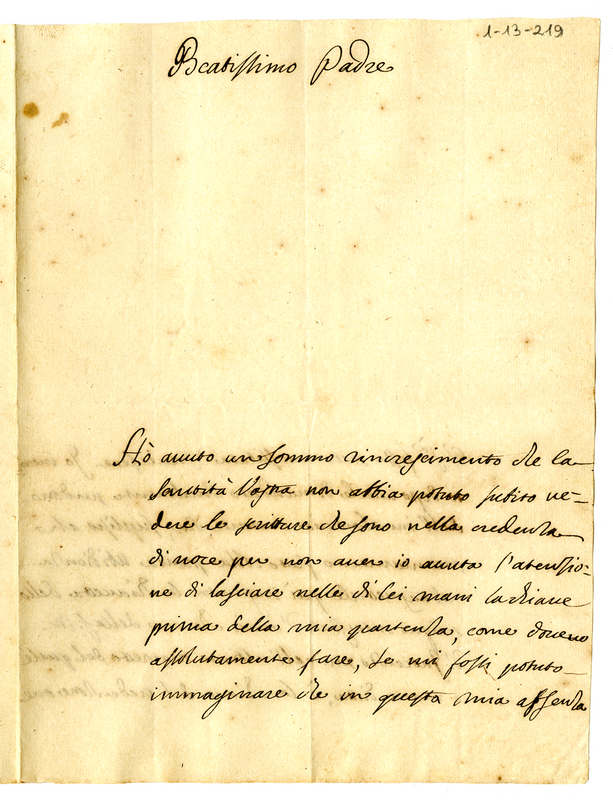 1-13-219
Beatissimo Padre
Hò avuto un sommo rincrescimento che la
Santità Vostra non abbia potuto subito ve=
dere le scritture che sono nella credenza
di noce per non aver io avuta l'atenzio=
ne di lasciare nelle di lei mani la chiave
prima della mia partenza, come dovevo
assolutamente fare, se mi fossi potuto
immaginare che in questa mia assenza